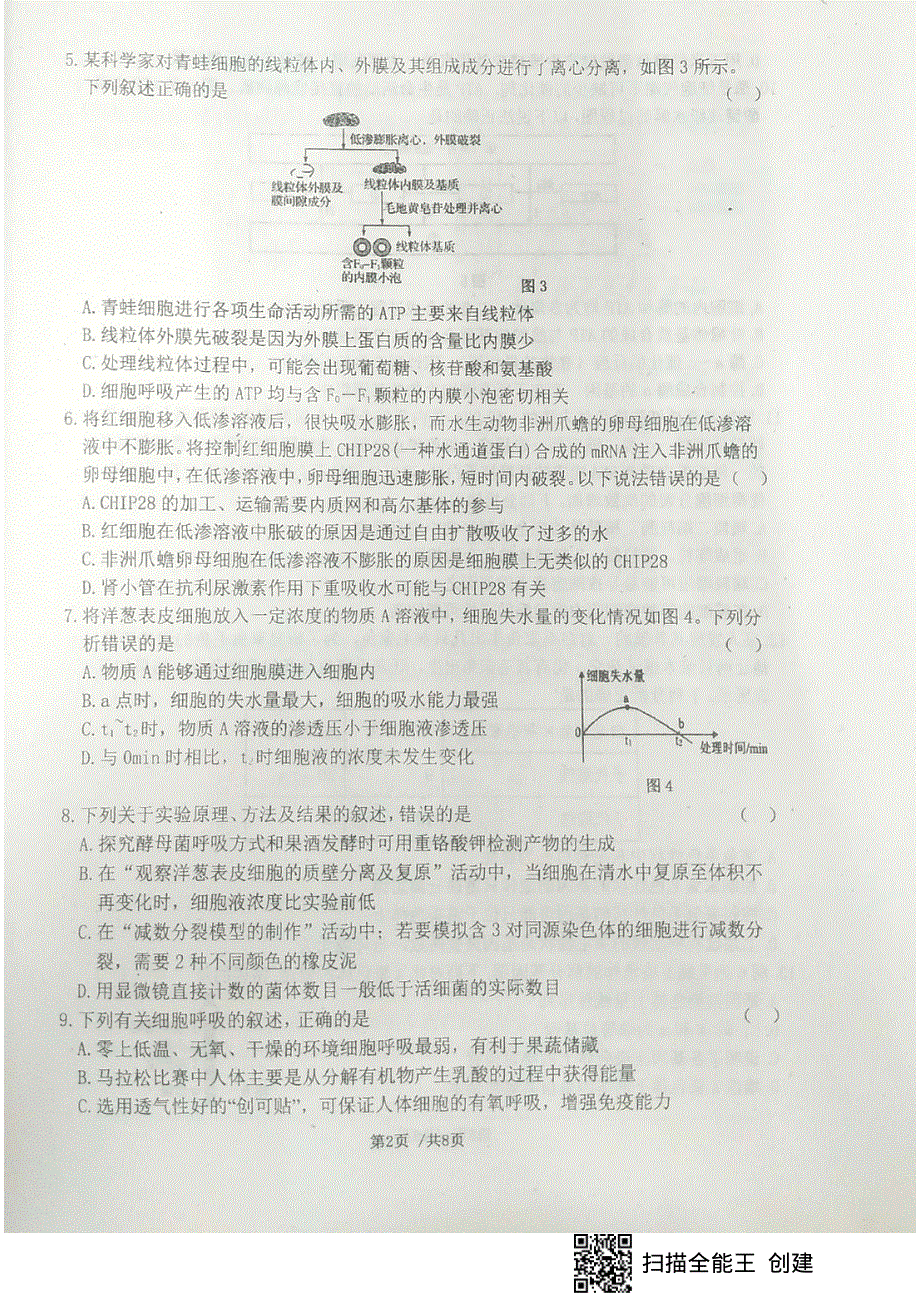 5. 某科学家对青蛙细胞的线粒体内、外膜及其组成成分进行了离心分离，如图3所示。
下列叙述正确的是 （ ）
低渗膨胀离心，外膜破裂
线粒体外膜及
膜间隙成分
线粒体内膜及基质
毛地黄皂苷处理并离心
线粒体基质
含F₀-F₁颗粒
的内膜小泡
图3
A. 青蛙细胞进行各项生命活动所需的ATP主要来自线粒体
B. 线粒体外膜先破裂是因为外膜上蛋白质的含量比内膜少
C. 处理线粒体过程中，可能会出现葡萄糖、核苷酸和氨基酸
D. 细胞呼吸产生的ATP均与含F₀—F₁颗粒的内膜小泡密切相关
6. 将红细胞移入低渗溶液后，很快吸水膨胀，而水生动物非洲爪蟾的卵母细胞在低渗溶
液中不膨胀。将控制红细胞膜上CHIP28(一种水通道蛋白)合成的mRNA注入非洲爪蟾的
卵母细胞中，在低渗溶液中，卵母细胞迅速膨胀，短时间内破裂。以下说法错误的是（ ）
A. CHIP28的加工、运输需要内质网和高尔基体的参与
B. 红细胞在低渗溶液中胀破的原因是通过自由扩散吸收了过多的水
C. 非洲爪蟾卵母细胞在低渗溶液不膨胀的原因是细胞膜上无类似的CHIP28
D. 肾小管在抗利尿激素作用下重吸收水可能与CHIP28有关
7. 将洋葱表皮细胞放入一定浓度的物质A溶液中，细胞失水量的变化情况如图4。下列分
析错误的是 （ ）
A. 物质A能够通过细胞膜进入细胞内
B. a点时，细胞的失水量最大，细胞的吸水能力最强
C. t₁~t₂时，物质A溶液的渗透压小于细胞液渗透压
D. 与0min时相比，t₂时细胞液的浓度未发生变化
细胞失水量
a
b
0
t₁
t₂
处理时间/min
图4
8. 下列关于实验原理、方法及结果的叙述，错误的是 （ ）
A. 探究酵母菌呼吸方式和果酒发酵时可用重铬酸钾检测产物的生成
B. 在“观察洋葱表皮细胞的质壁分离及复原”活动中，当细胞在清水中复原至体积不
再变化时，细胞液浓度比实验前低
C. 在“减数分裂模型的制作”活动中；若要模拟含3对同源染色体的细胞进行减数分
裂，需要2种不同颜色的橡皮泥
D. 用显微镜直接计数的菌体数目一般低于活细菌的实际数目
9. 下列有关细胞呼吸的叙述，正确的是 （ ）
A. 零上低温、无氧、干燥的环境细胞呼吸最弱，有利于果蔬储藏
B. 马拉松比赛中人体主要是从分解有机物产生乳酸的过程中获得能量
C. 选用透气性好的“创可贴”，可保证人体细胞的有氧呼吸，增强免疫能力
第2页 /共8页
扫描全能王 创建